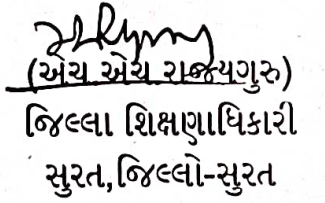 (એચ એચ રાજ્યગુરુ)
જિલ્લા શિક્ષણાધિકારી
સુરત,જિલ્લો-સુરત